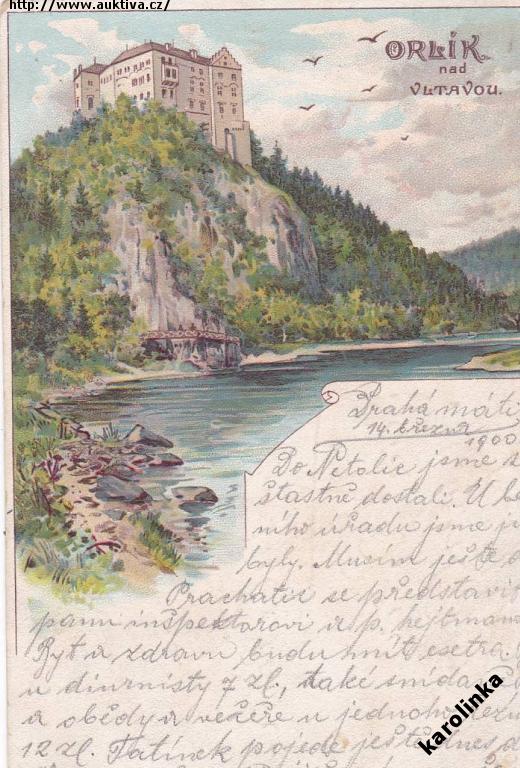 http://www.auktiva.cz/
ORLÍK
nad
VLTAVOU.
Drahá máti
14. března
1900
Do Netolic jsme s
šťastně dostali. U be
ního úřadu jsme
byly. Musím ještě
Prachatic se představi
panu inspektorovi a p. hejtman
Byt a zdravu budu mít
u diurnisty 7 zl., také snída
a obědy a večeře u jednoho
12 zl. Tatínek pojede ještě dnes
karolinka